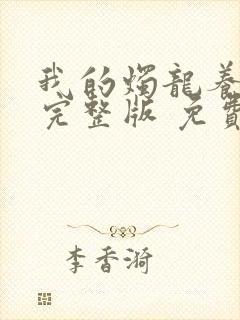 我的燭龍養
完整版 免費
李香漪